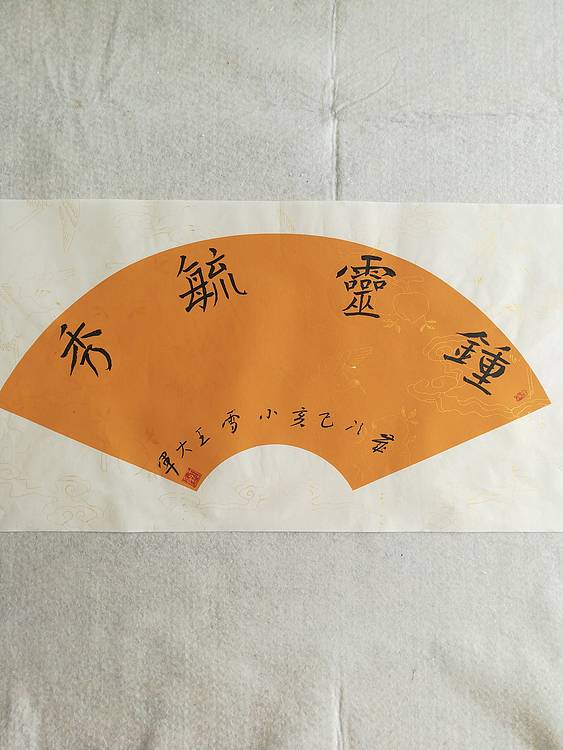 鍾靈毓秀
歲次己亥小雪王大軍